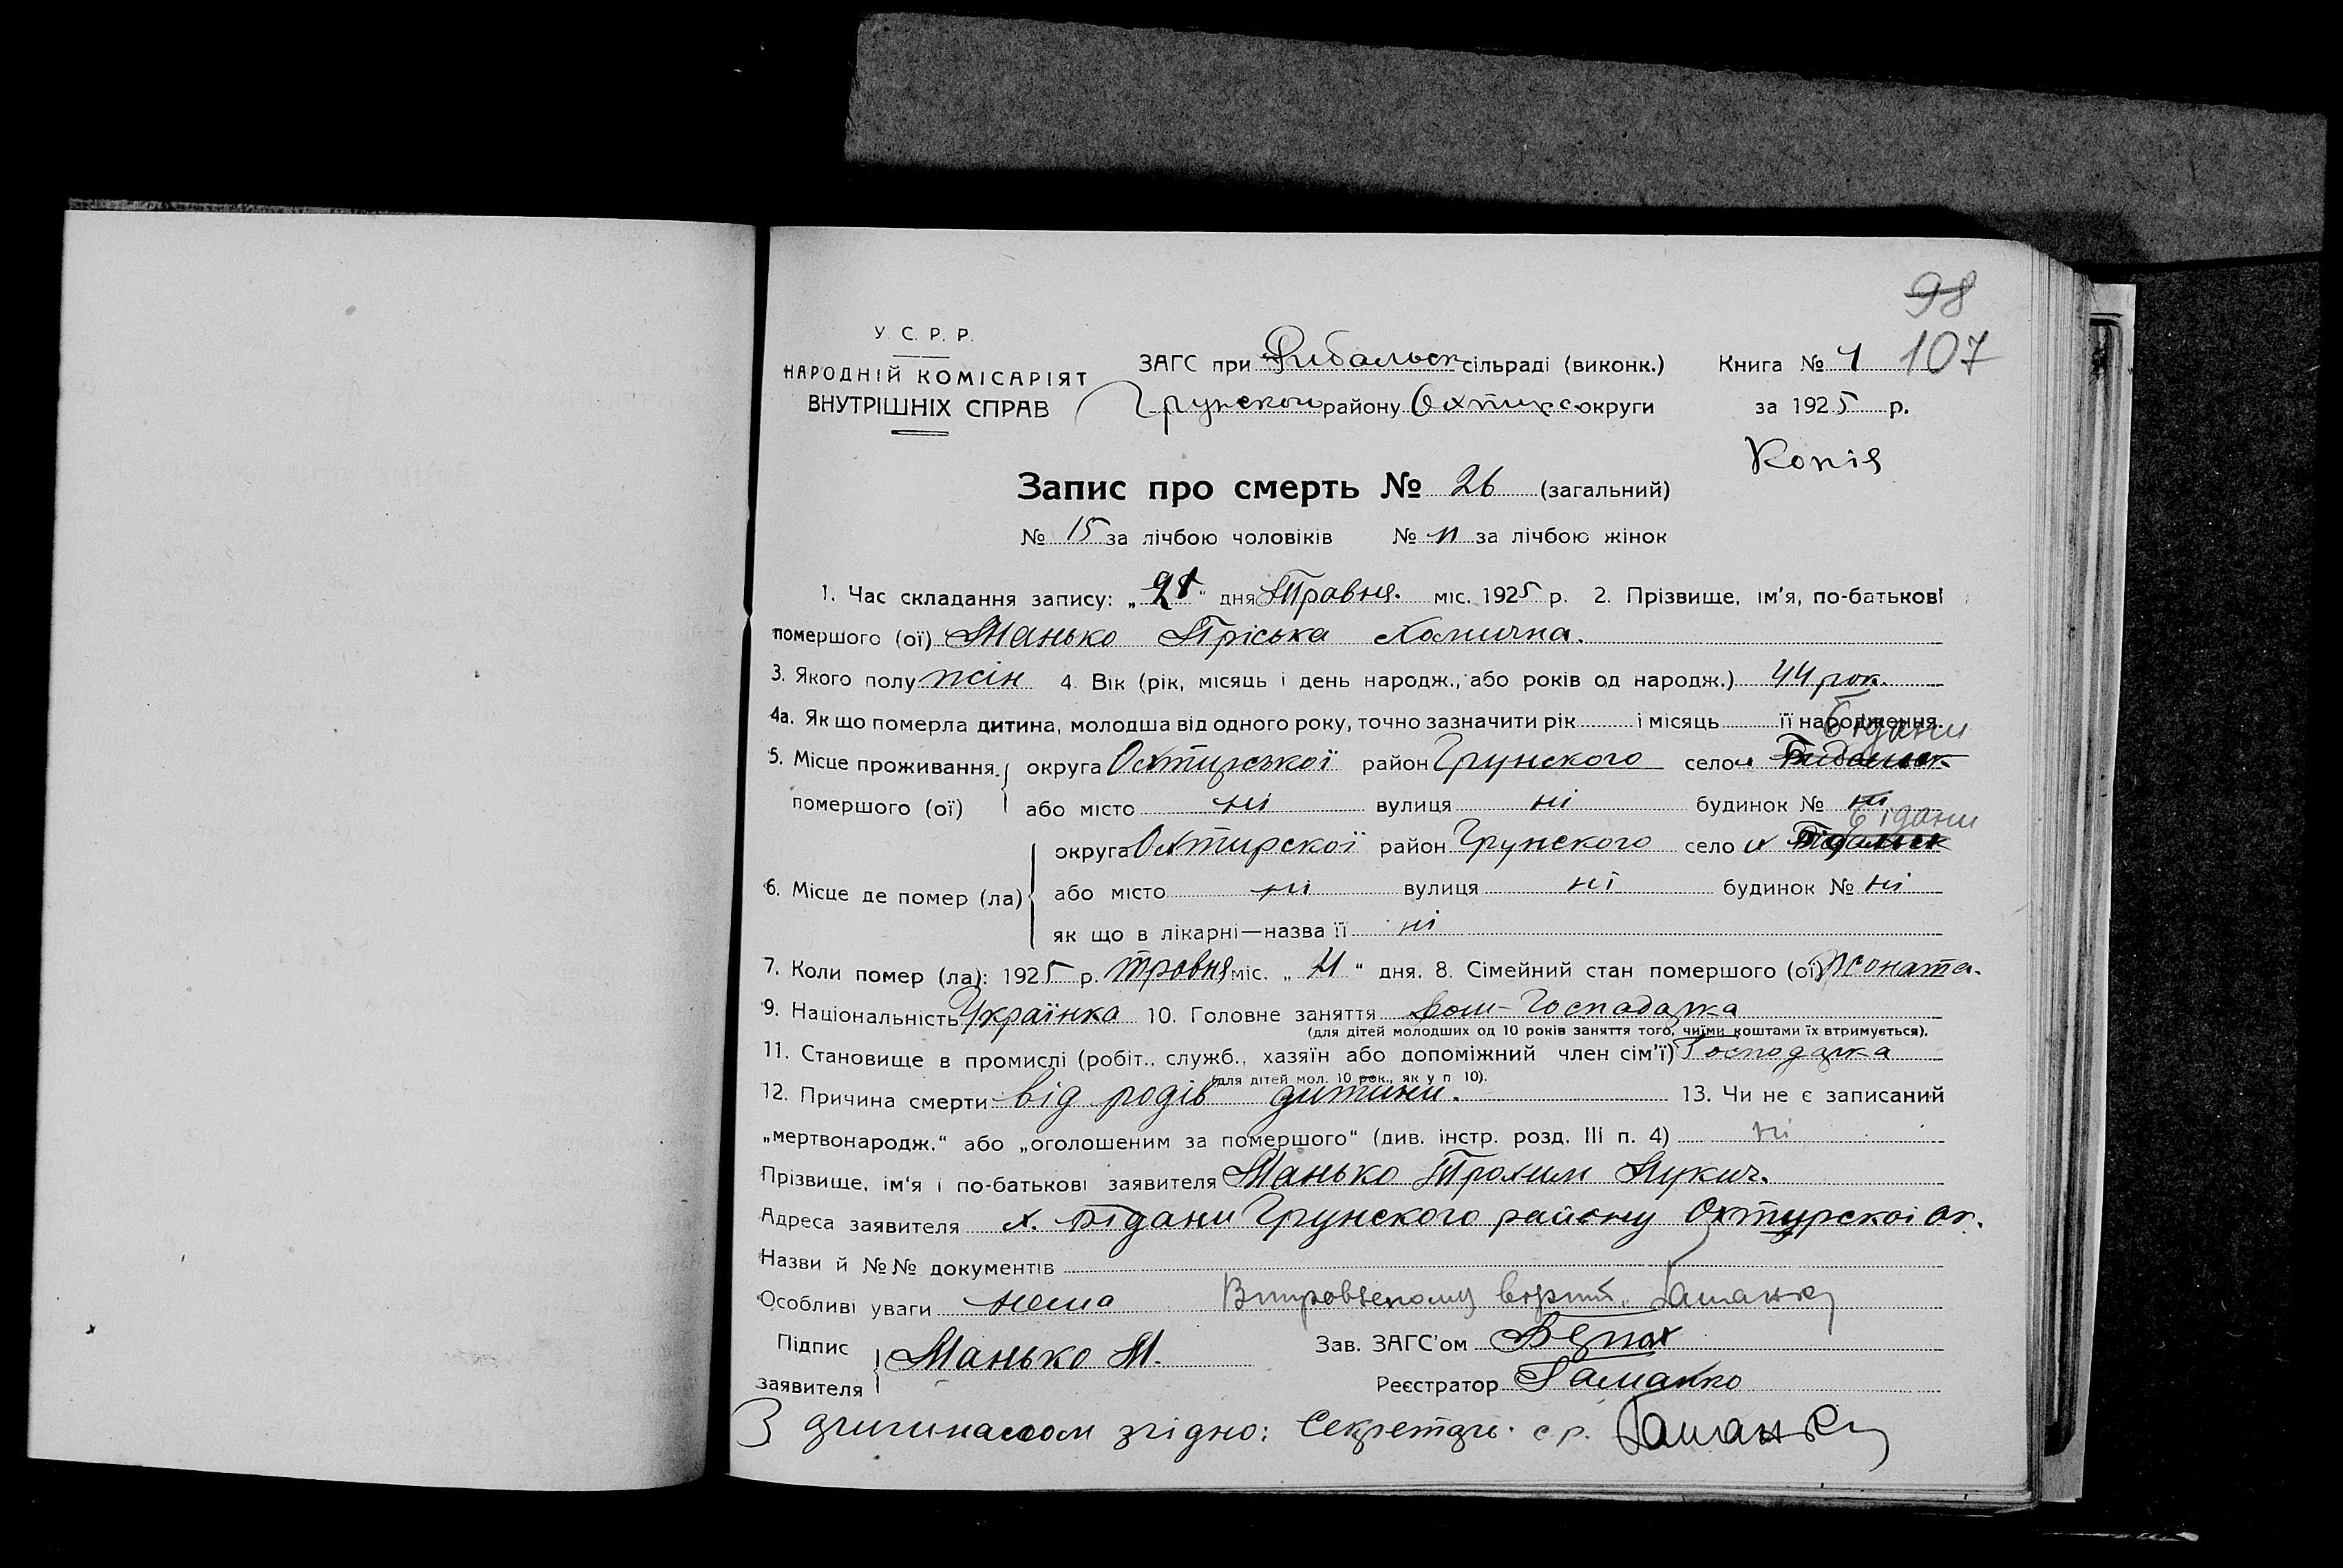 98
107
У. С. Р. Р.
НАРОДНІЙ КОМІСАРІЯТ
ВНУТРІШНІХ СПРАВ
ЗАГС при Рибальск сільраді (виконк.) Книга № 1
Грунского району Охтирс округи за 1925 р.
Копія
Запис про смерть № 26 (загальний)
№ 15 за лічбою чоловіків № 11 за лічбою жінок
1. Час складання запису: „21“ дня Травня. міс. 1925 р. 2. Прізвище, ім'я, по-батькові
помершого (ої) Манько Пріська Хомична.
3. Якого полу жін 4. Вік (рік, місяць і день народж., або років од народж.) 44 рок.
4а. Як що померла дитина, молодша від одного року, точно зазначити рік і місяць її народження.
Бідани
5. Місце проживання помершого (ої) округа Охтирської район Грунского село
або місто ні вулиця ні будинок № ні
Бідани
6. Місце де помер (ла) округа Охтирскої район Грунского село х
або місто ні вулиця ні будинок № ні
як що в лікарні—назва її ні
7. Коли помер (ла): 1925 р. травня міс. „ “ дня. 8. Сімейний стан помершого (ої) жоната.
9. Національність Українка 10. Головне заняття Дом-Господарка
(для дітей молодших од 10 років заняття того, чиїми коштами їх втримується).
11. Становище в промислі (робіт., служб., хазяїн або допоміжний член сім'ї) Господарка
(для дітей мол. 10 рок., як у п 10).
12. Причина смерти від родів дитини. 13. Чи не є записаний
„мертвонародж.“ або „оголошеним за помершого“ (див. інстр. розд. III п. 4) ні
Прізвище, ім'я і по-батькові заявителя Манько Трохим Лукич.
Адреса заявителя х. Бідани Грунского району Охтирскої ок.
Назви й №№ документів
Особливі уваги нема Виправленому вірит. Гаманко
Підпис заявителя Манько М. Зав. ЗАГС'ом
Реєстратор Гаманко
З оригиналом згідно: Секретарь с.р. Гаманко